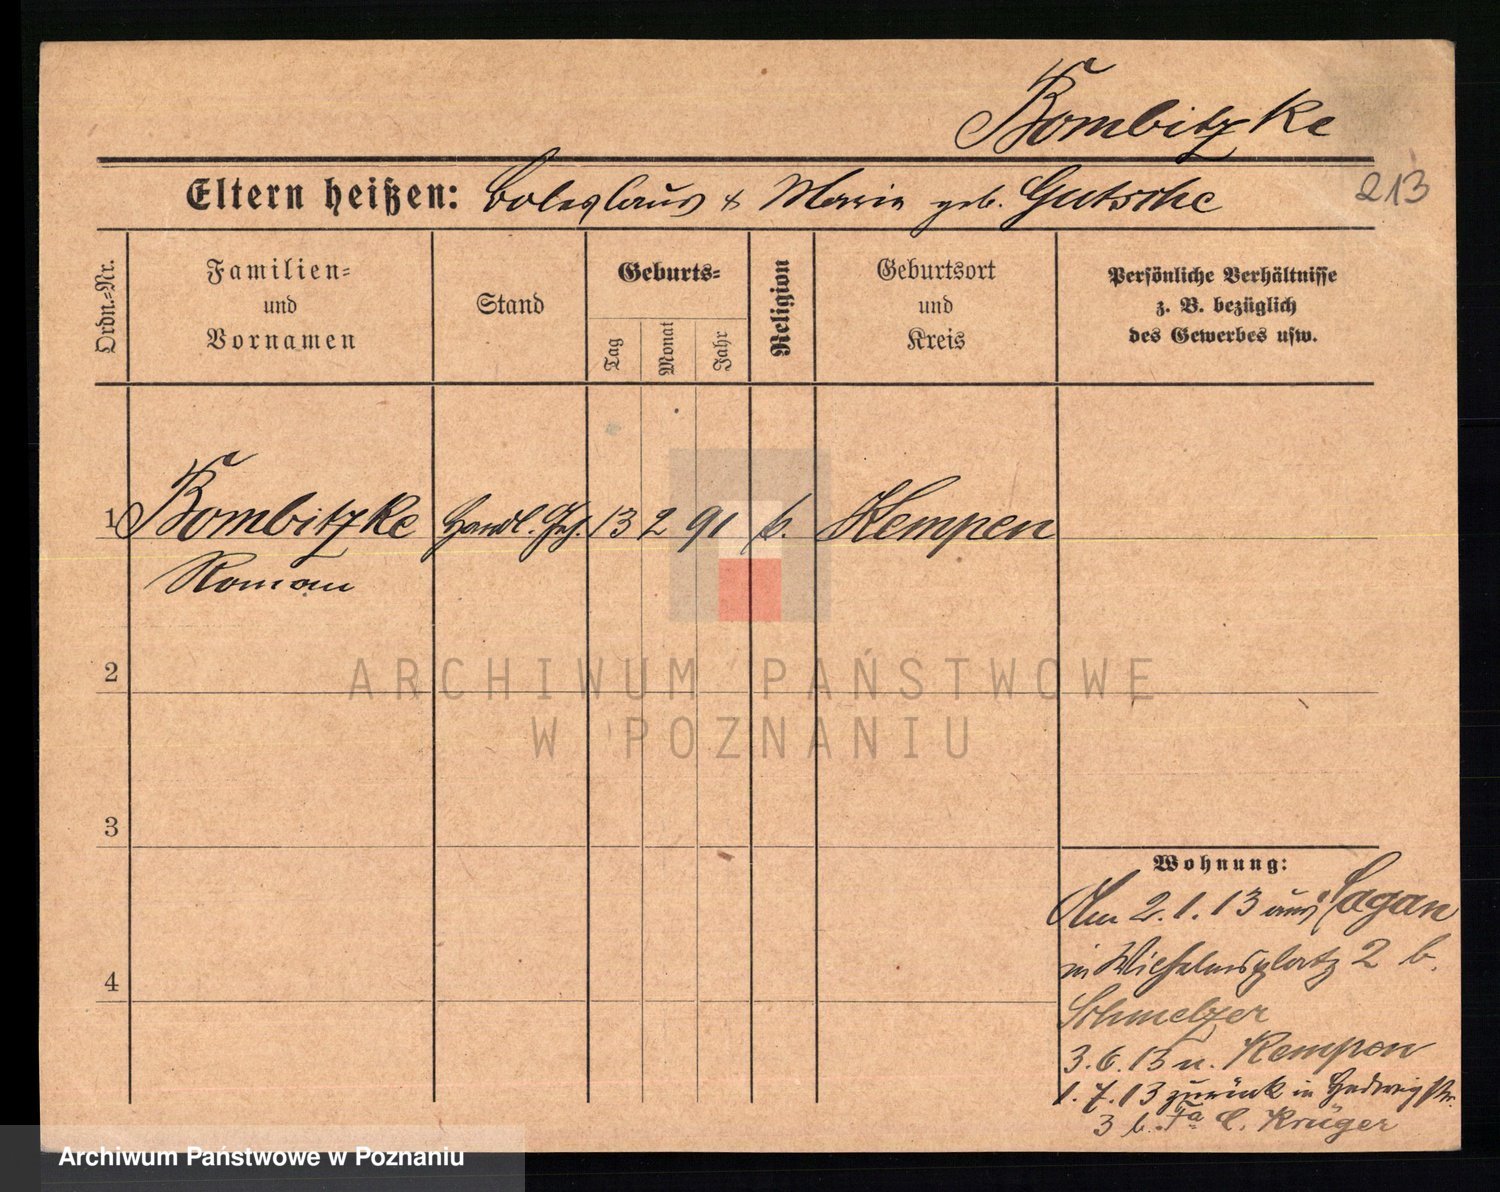 Bombitzke
Eltern heißen: Boleslaus & Maria geb. Gutsche
213
Ordn.-Nr.
Familien-
und
Vornamen
Stand
Geburts-
Tag
Monat
Jahr
Religion
Geburtsort
und
Kreis
Persönliche Verhältnisse
z. B. bezüglich
des Gewerbes usw.
1 Bombitzke Handl. Geh. 13 2 91 k. Kempen
Roman
2
3
4
ARCHIWUM PAŃSTWOWE
W POZNANIU
Wohnung:
Am 2.1.13 aus Sagan
in Wilhelmsplatz 2 b.
Schmelzer
3.6.13 n. Kempen
1.7.13 zurück in Hedwigstr.
3 b. Fa C. Krüger
Archiwum Państwowe w Poznaniu